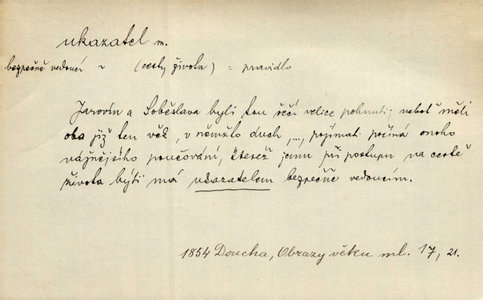 ukazatel m.
bezpečně vedoucí ~ (cesty života) = pravidlo
Jarovín a Soběslava byli tou řečí velice pohnuti: neboť měli
oba již ten věk, v němžto duch, ..., pojímat počíná onoho
vážnějšího poučování, kteréž jemu při postupu na cestě
života býti má ukazatelem bezpečně vedoucím.
1854 Doucha, Obrazy věku ml. 17, 21.